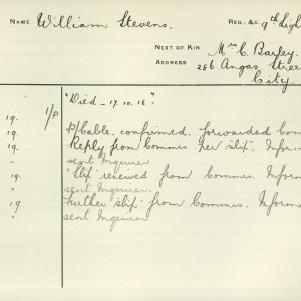 NAME William Stevens. REG., &C. 9th Ligh
NEXT OF KIN Mrs C. Barley.
ADDRESS 286 Angas Stree
City.
"Died - 17.10.18."
19. 1/P P/Cable. confirmed. forwarded Com
19. Reply from Commrs per slip. Infor
" sent Inquirer
19. "Slip" received from Commrs. Inform
" sent Inquirer.
19 Further "slip" from Commrs. Informa
" sent Inquirer